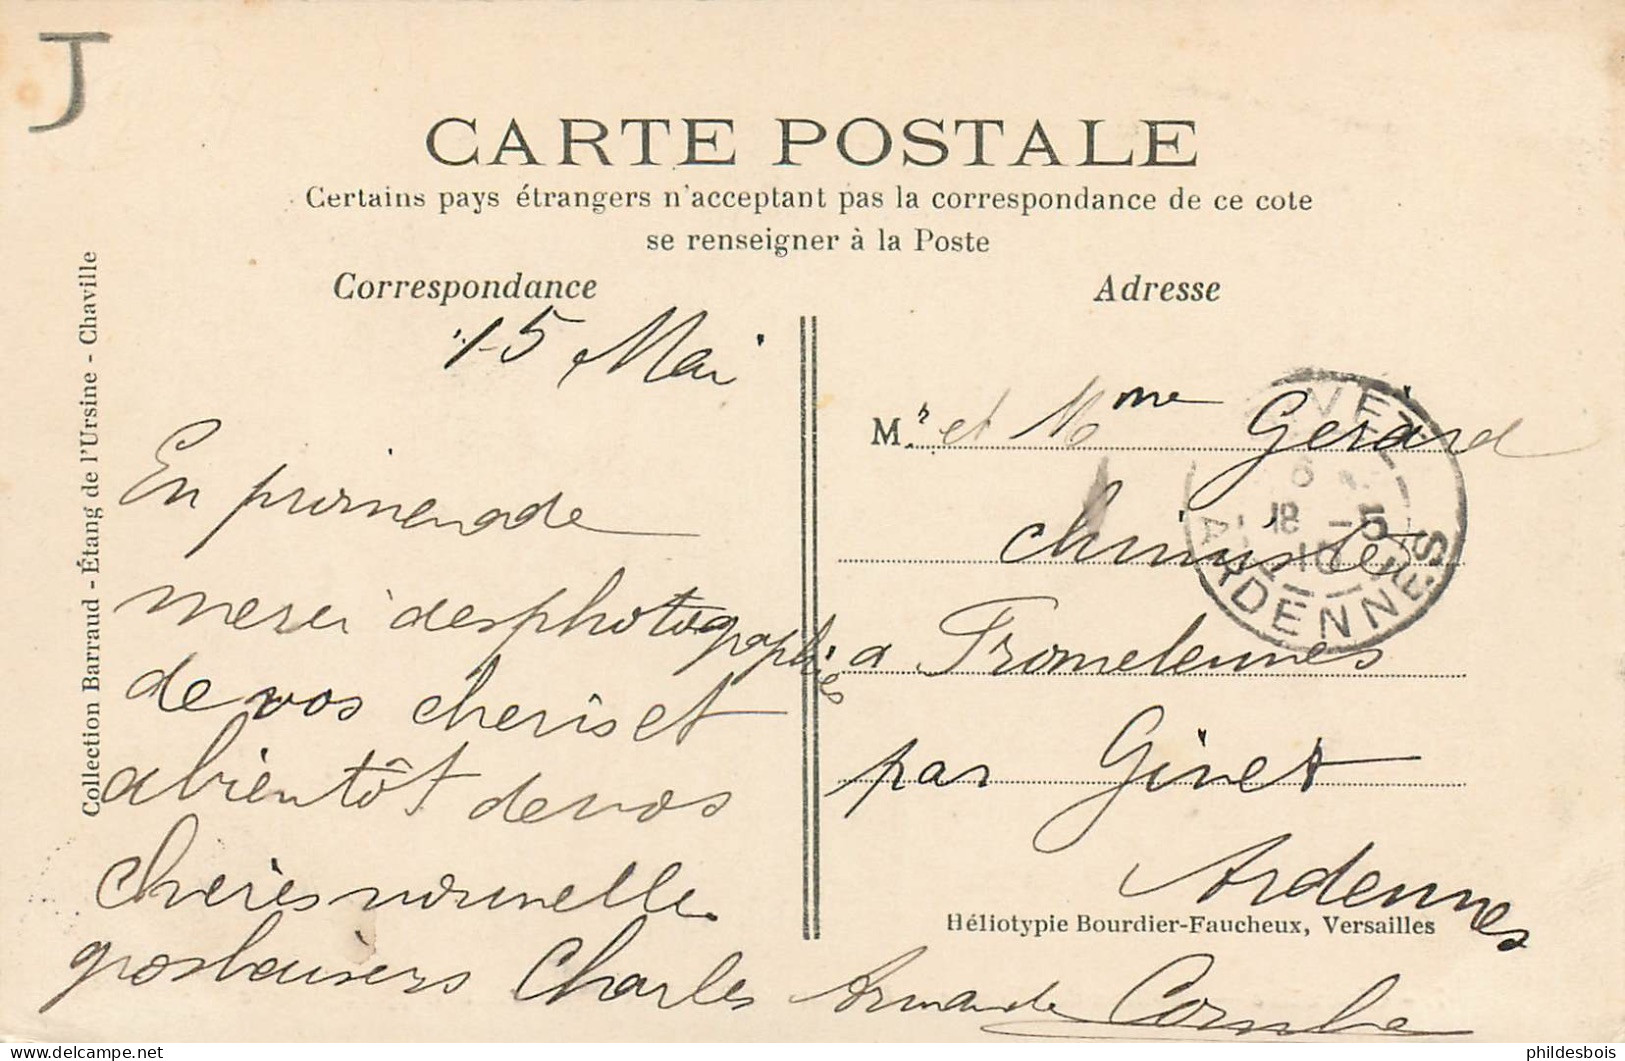 J
CARTE POSTALE
Certains pays étrangers n'acceptent pas la correspondance de ce cote
se renseigner à la Poste
Correspondance
15 Mai
En promenade
merci des photographies
de vos cheris et
a bientôt de vos
cheres nouvelle
gros baisers Charles Armande Combe
Adresse
M.r et Mme Gerard
chimiste
a Fromelennes
par Givet
Ardennes
VET
6
18 - 5
10
ARDENNES
Collection Barraud - Étang de l'Ursine - Chaville
Héliotypie Bourdier-Faucheux, Versailles
phildesbois